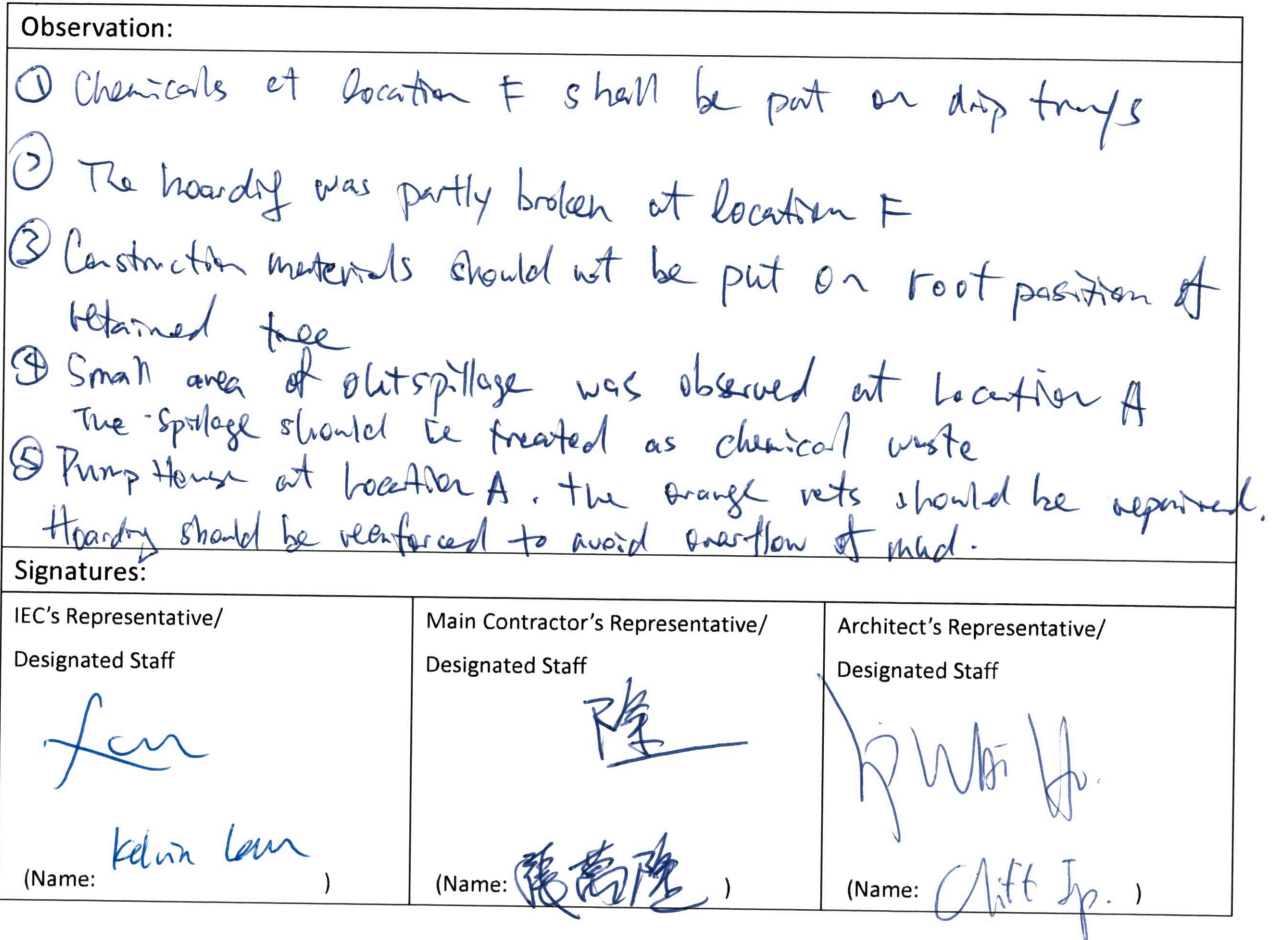 Observation:
① Chemicals at location F shall be put on drip trays
② The hoarding was partly broken at location F
③ Construction materials should not be put on root position of
retained tree
④ Small area of oil spillage was observed at Location A
The spillage should be treated as chemical waste
⑤ Pump House at Location A. the orange nets should be repaired.
Hoarding should be reenforced to avoid overflow of mud.
Signatures:
IEC's Representative/
Designated Staff
Main Contractor's Representative/
Designated Staff
Architect's Representative/
Designated Staff
隆
Ip Wai Ho.
(Name: Kelvin Lam )
(Name: 張萬隆 )
(Name: Cliff Ip. )